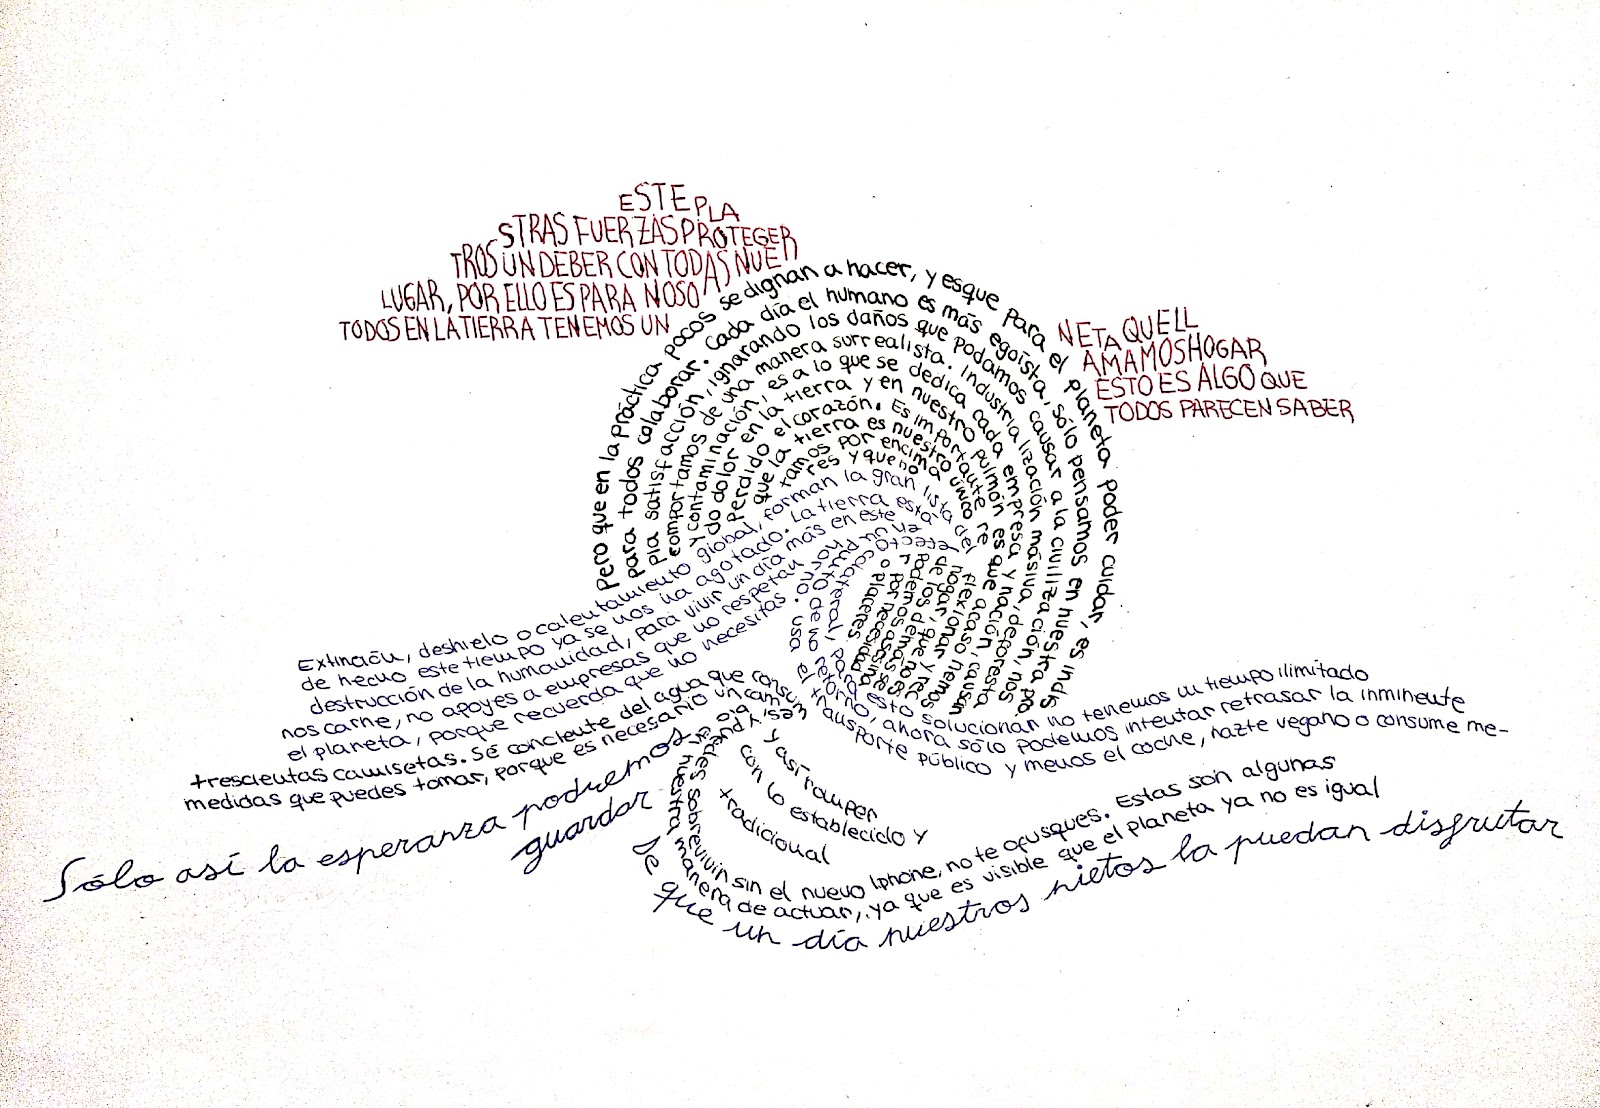 ESTE PLA
STRAS FUERZAS PROTEGER
TROS UN DEBER CON TODAS NUE
LUGAR, POR ELLO ES PARA NOSO
TODOS EN LA TIERRA TENEMOS UN
NETA QUE LL
AMAMOS HOGAR
ESTO ES ALGO QUE
TODOS PARECEN SABER
Pero que en la práctica pocos se dignan a hacer, y es que para el planeta poder cuidar, es indis
para todos colaborar. Cada día el humano es más egoísta, sólo pensamos en nuestra pro
pia satisfacción, ignorando los daños que podamos causar a la civilización, nos
comportamos de una manera surrealista. Industrialización másiva, deforesta
y contaminación, es a lo que se dedica cada empresa y nación, causan
do dolor en la tierra y en nuestro pulmón es que acaso hemos
Perdido el corazón. Es importante re flexionar
que la tierra es nuestro único hogar, que y re
tamos por encima de los demás se
res y que no podemos asesina
r por necesidad
o placeres.
Extinción, deshielo o calentamiento global, forman la gran lista del
efecto colateral, para esto solucionar no tenemos un tiempo ilimitado
de hecho este tiempo ya se nos ha agotado. La tierra está
en un punto de no retorno, ahora sólo podemos intentar retrasar la inminente
destrucción de la humanidad, para vivir un día más en este
horno. usa el transporte público y menos el coche, hazte vegano o consume me-
nos carne, no apoyes a empresas que no respetan
el planeta, porque recuerda que no necesitas
trescientas camisetas. Sé conciente del agua que consum
es, y puedes sobrevivir sin el nuevo Iphone, no te ofusques. Estas son algunas
medidas que puedes tomar, porque es necesario un cam
bio en nuestra manera de actuar, ya que es visible que el planeta ya no es igual
y así romper
con lo establecido y
tradicional
Sólo así la esperanza podremos
guardar
De que un día nuestros nietos la puedan disfrutar